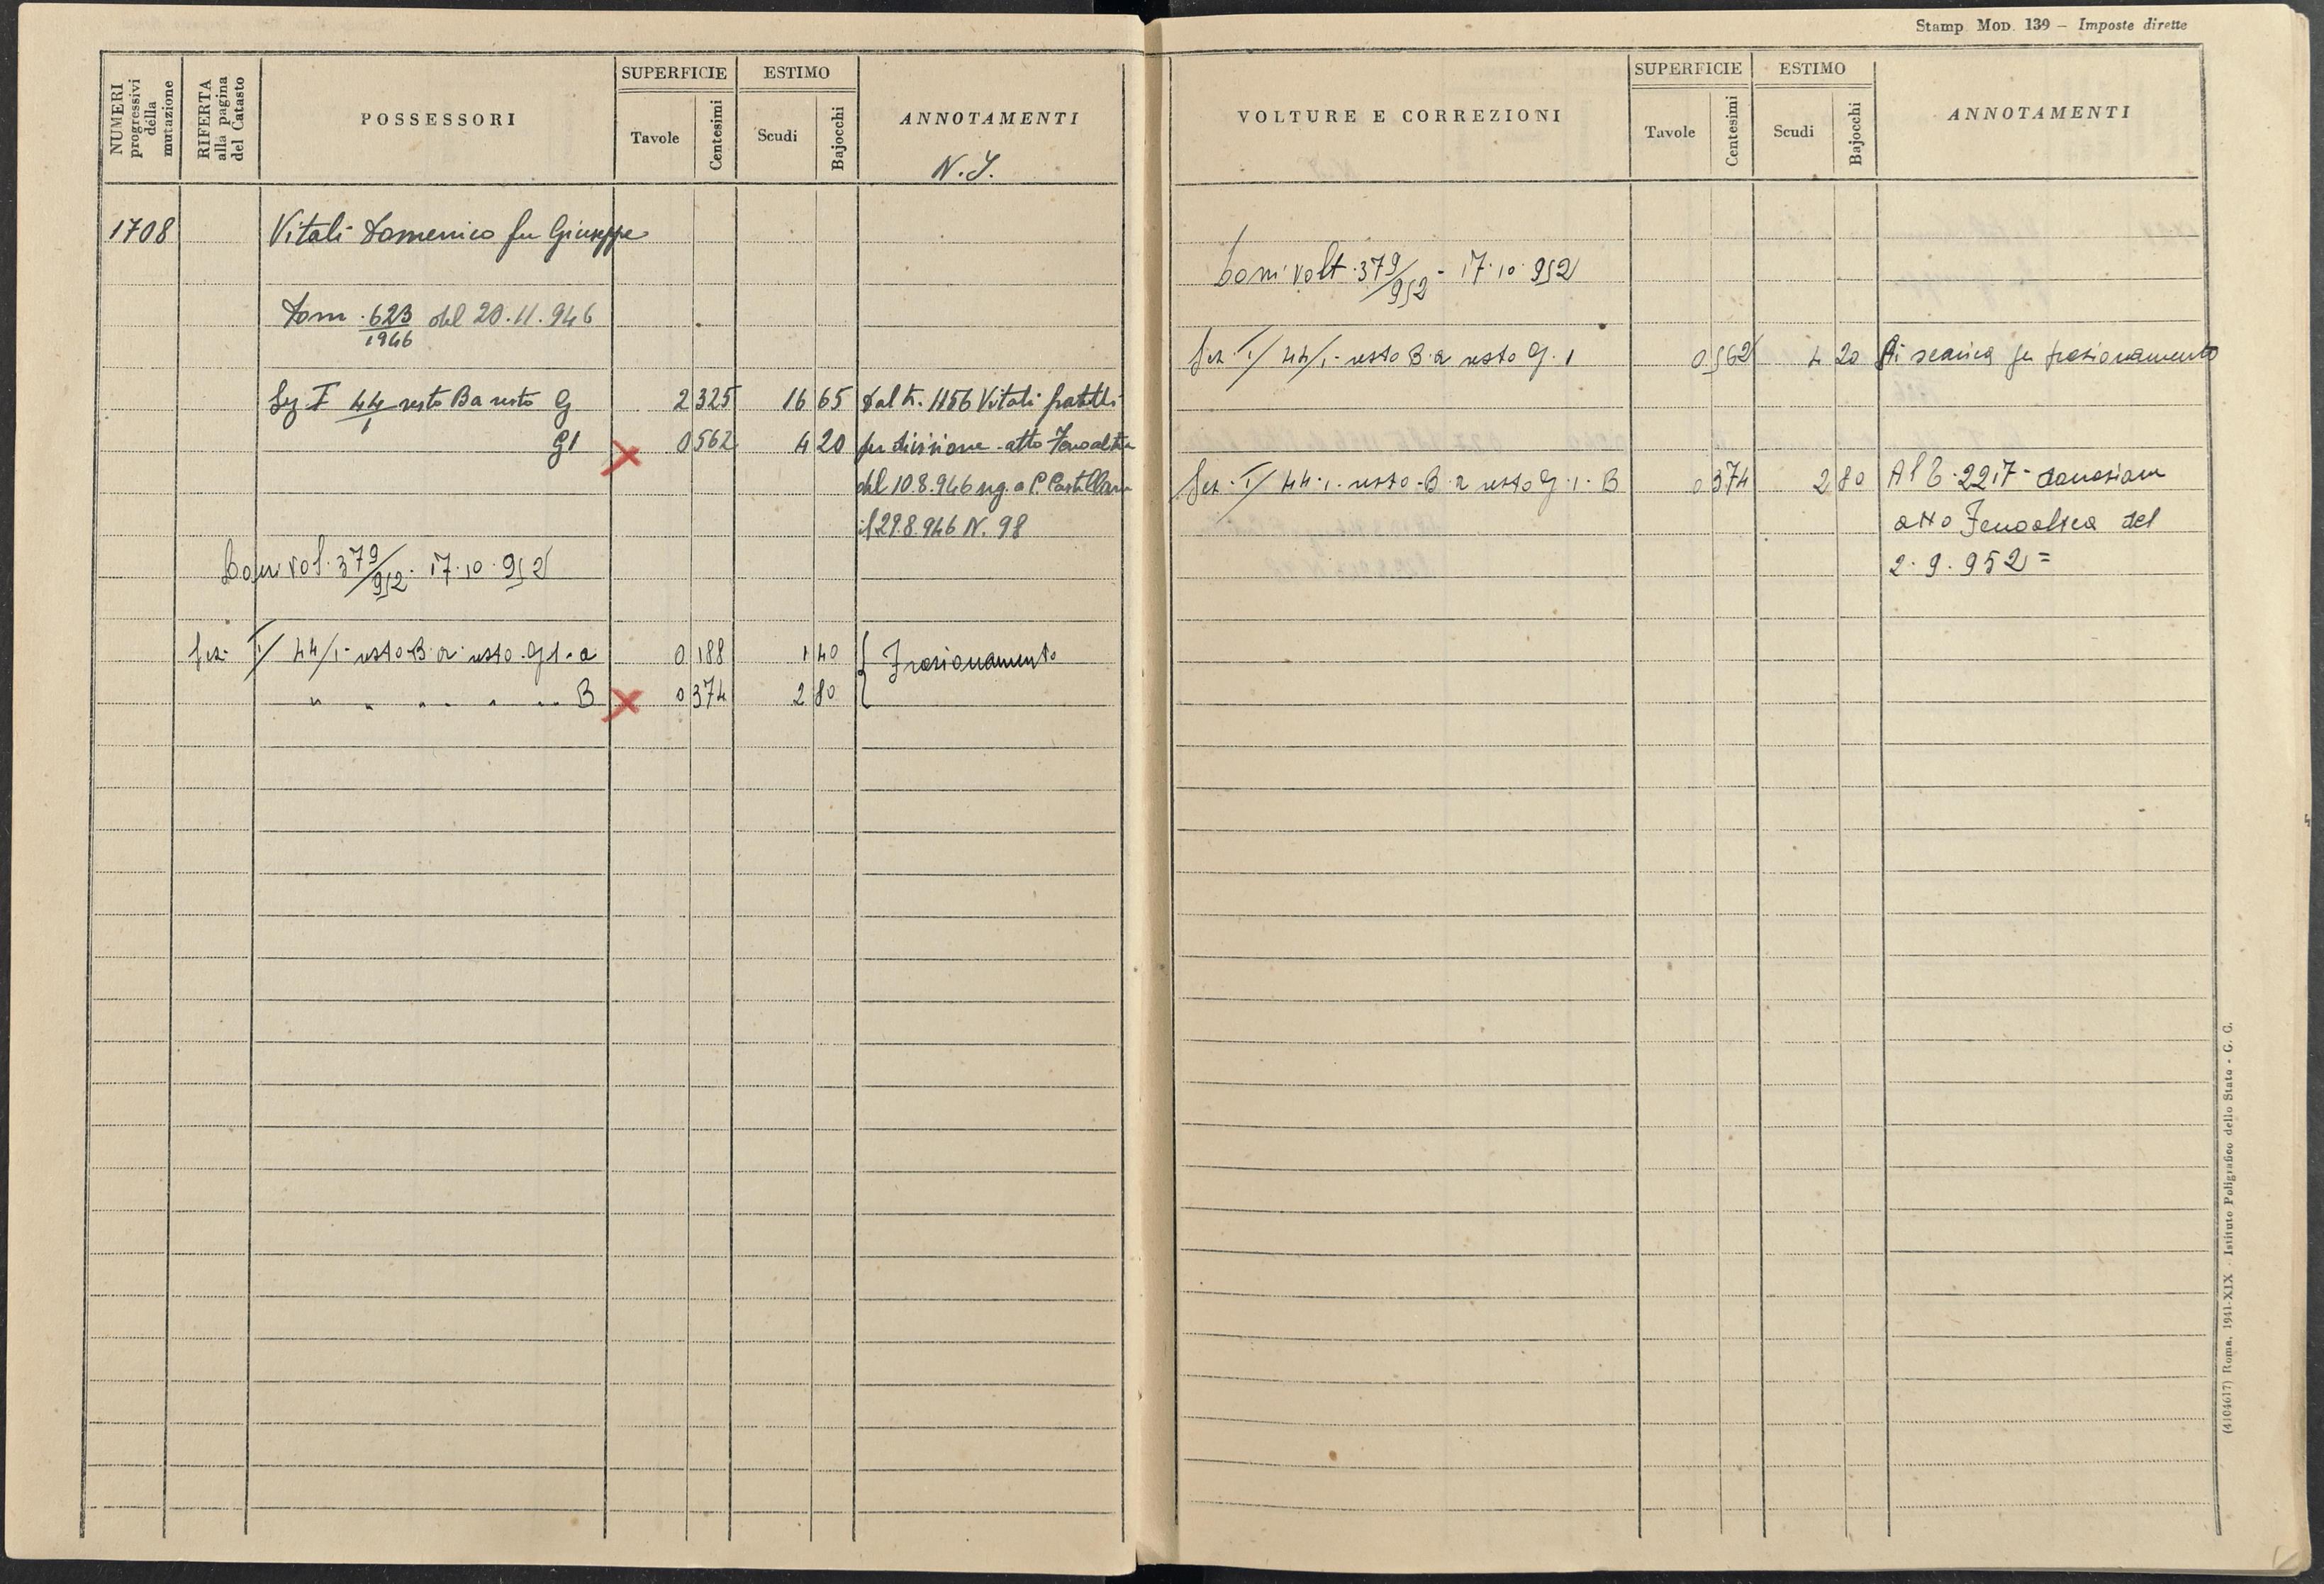 NUMERI progressivi della mutazione
RIFERTA alla pagina del Catasto
POSSESSORI
SUPERFICIE
Tavole
Centesimi
ESTIMO
Scudi
Bajocchi
ANNOTAMENTI
1708
Vitali Domenico fu Giuseppe
Dom. 623/1946 del 20.11.946
Sez I 44/1 resto B a resto G 2 325 16 65 Dal N. 1156 Vitali fratelli
G1 0 562 4 20 per divisione atto Fenoaltea
del 10.8.946 reg. a C. Castellana
il 29.8.946 N. 98
Dom vol. 379/952 - 17.10.952
Sez. I/ 44/1 - resto B a resto G 1 - a 0 188 1 40 Frazionamento
" " " " " B 0 374 2 80
Stamp. MOD. 139 - Imposte dirette
VOLTURE E CORREZIONI
SUPERFICIE
Tavole
Centesimi
ESTIMO
Scudi
Bajocchi
ANNOTAMENTI
Dom volt. 379/952 - 17.10.952
Sez. I/ 44/1 - resto B a resto G. 1 0 562 4 20 Si scarica per frazionamento
Sez. I/ 44.1. resto B a resto G. 1. B 0 374 2 80 Al 2217 donazione
atto Fenoaltea del
2.9.952 =
(4104617) Roma, 1941-XIX - Istituto Poligrafico dello Stato - G. C.